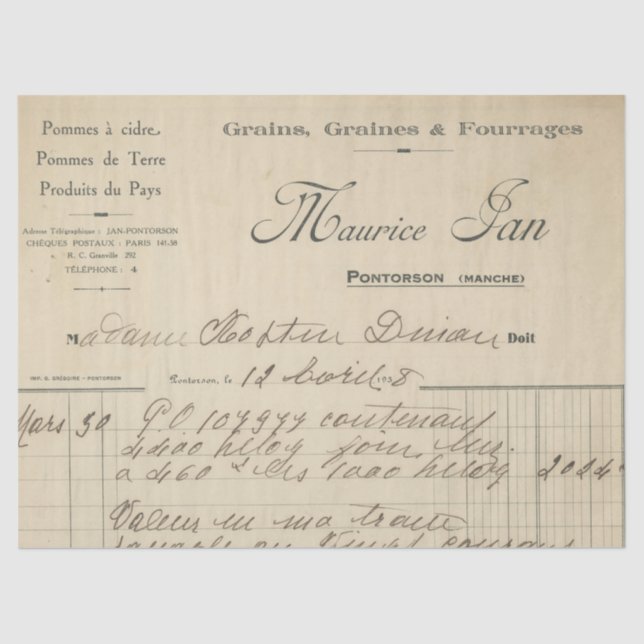 Pommes à cidre
Pommes de Terre
Produits du Pays
Adresse Télégraphique : JAN-PONTORSON
CHÈQUES POSTAUX : PARIS 141-38
R. C. Granville 292
TÉLÉPHONE : 4
Grains, Graines & Fourrages
Maurice Jan
PONTORSON (MANCHE)
Madame Dinan Doit
IMP. G. GRÉGOIRE - PONTORSON
Pontorson, le 12 Avril 1938
Mars 30 P.O 107977 contenant
4400 foin
a 460 les 1000 2024
Valeur en ma traite
payable au vingt courant